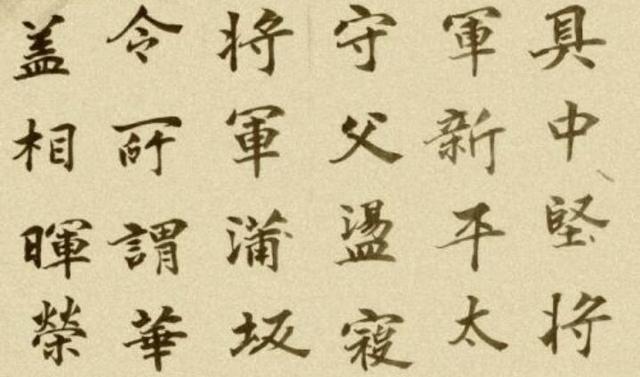 具中堅将
軍新平太
守父盪寇
将軍蒲坂
令所謂華
盖相暉榮